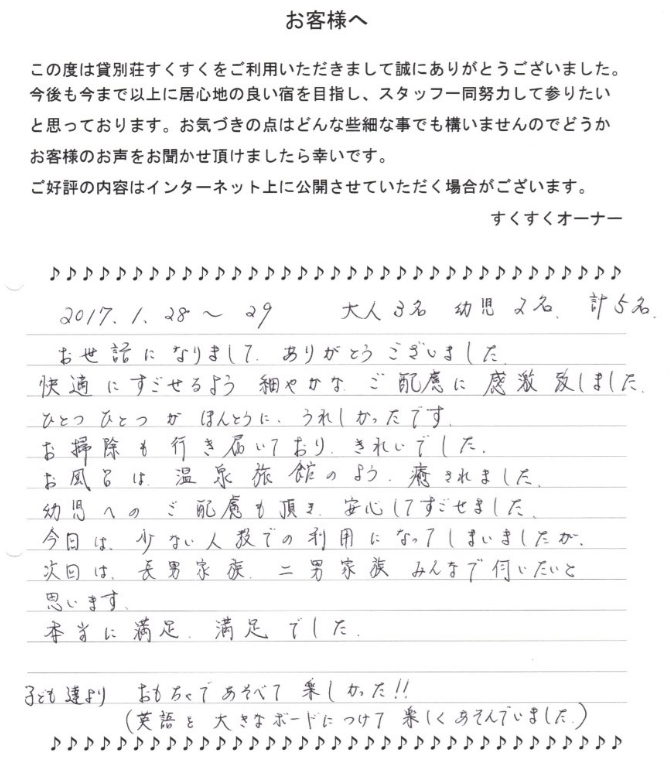 お客様へ
この度は貸別荘すくすくをご利用いただきまして誠にありがとうございました。
今後も今まで以上に居心地の良い宿を目指し、スタッフ一同努力して参りたい
と思っております。お気づきの点はどんな些細な事でも構いませんのでどうか
お客様のお声をお聞かせ頂けましたら幸いです。
ご好評の内容はインターネット上に公開させていただく場合がございます。
すくすくオーナー
♪♪♪♪♪♪♪♪♪♪♪♪♪♪♪♪♪♪♪♪♪♪♪♪♪♪♪♪♪♪♪♪♪♪♪
2017.1.28～29 大人3名 幼児2名. 計5名.
お世話になりまして、ありがとうございました.
快適にすごせるよう 細やかな ご配慮に 感激致しました.
ひとつひとつが ほんとうに、うれしかったです.
お掃除も行き届いており、きれいでした.
お風呂は、温泉旅館のよう、癒されました.
幼児へのご配慮も頂き、安心してすごせました.
今日は、少ない人数での利用になってしまいましたが、
次回は、長男家族、二男家族 みんなで伺いたいと
思います.
本当に満足、満足でした.
子ども達より おもちゃであそべて 楽しかった!!
(英語を 大きなボードにつけて 楽しくあそんでいました.)
♪♪♪♪♪♪♪♪♪♪♪♪♪♪♪♪♪♪♪♪♪♪♪♪♪♪♪♪♪♪♪♪♪♪♪